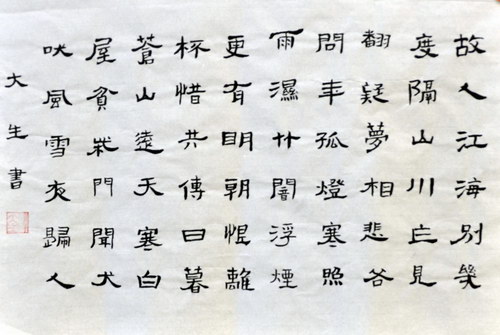 故人江海别幾
度隔山川乍見
翻疑夢相悲各
問年孤燈寒照
雨濕竹闇浮煙
更有明朝恨離
杯惜共傳日暮
蒼山遠天寒白
屋貧柴門聞犬
吠風雪夜歸人
大生書